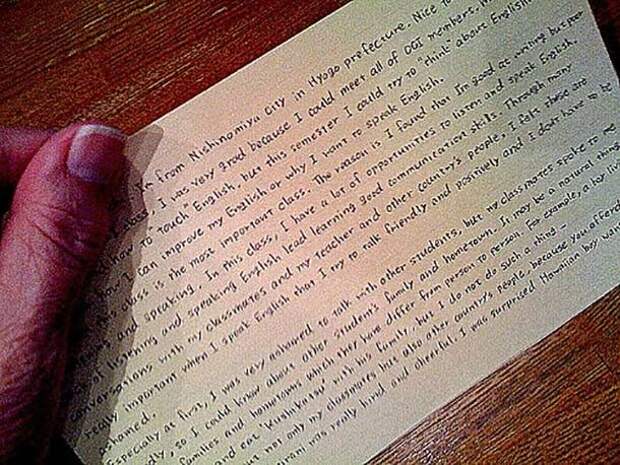 from Nishinomiya City in Hyogo prefecture. Nice to
I was very grad because I could meet all of OGI members.
to touch" English, but this semester I could try to "think" about English
can improve my English or why I want to speak English.
class is the most important class. The reason is I found that I'm good at writing but poor
and speaking. In this class, I have a lot of opportunities to listen and speak English.
listening and speaking English lead learning good communication skills. Through many
conversations with my classmates and my teacher and other country's people, I felt these are
really important when I speak English that I try to talk friendly and positively and I don't have to be
ashamed.
Especially at first, I was very ashamed to talk with other students, but my classmates spoke to me
so I could know about other students' family and hometown. It may be a natural thing
families and hometowns which they have differ from person to person. For example, a boy
and eat Kushikatsu with his family, but I do not do such a thing.
not only my classmates but also other country's people, because you offered
was really kind and cheerful. I was surprised Hawaiian boy